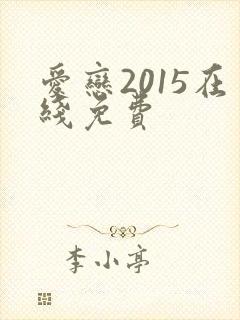 愛戀2015在
綫免費
李小亭